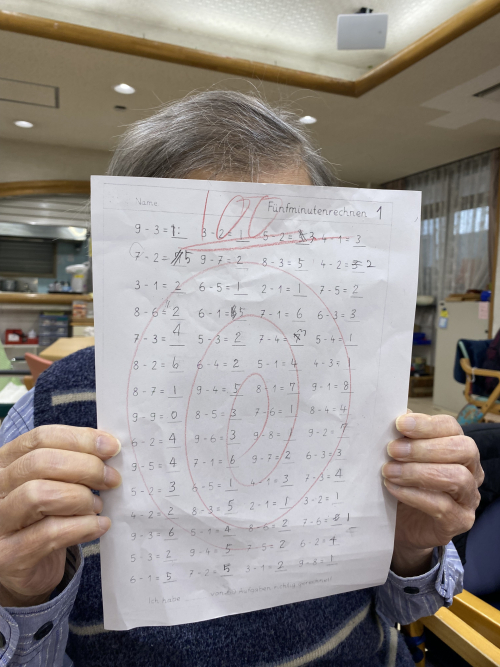 Name 100 Fünfminutenrechnen 1
9-3= 3-2=1 5-2=3 4-1=3
7-2=5 9-7=2 8-3=5 4-2=2
3-1=2 6-5=1 2-1=1 7-5=2
8-6=2 6-1=5 7-1=6 6-3=3
7-3=4 5-3=2 7-4= 5-4=1
8-2=6 6-4=2 5-1=4 4-3=1
8-7=1 9-4=5 8-1=7 9-1=8
9-9=0 8-5=3 7-6=1 8-4=4
6-2=4 9-6=3 9-8=1 9-2=7
9-5=4 7-1=6 9-7=2 6-3=3
5-2=3 6-5=1 4-1=3 7-3=4
4-2=2 8-3=5 2-1=1 3-2=1
9-3=6 5-1=4 8-6=2 7-6=1
5-3=2 9-4=5 7-5=2 6-2=4
6-1=5 7-2=5 3-1=2 9-8=1
Ich habe von 60 Aufgaben richtig gerechnet!